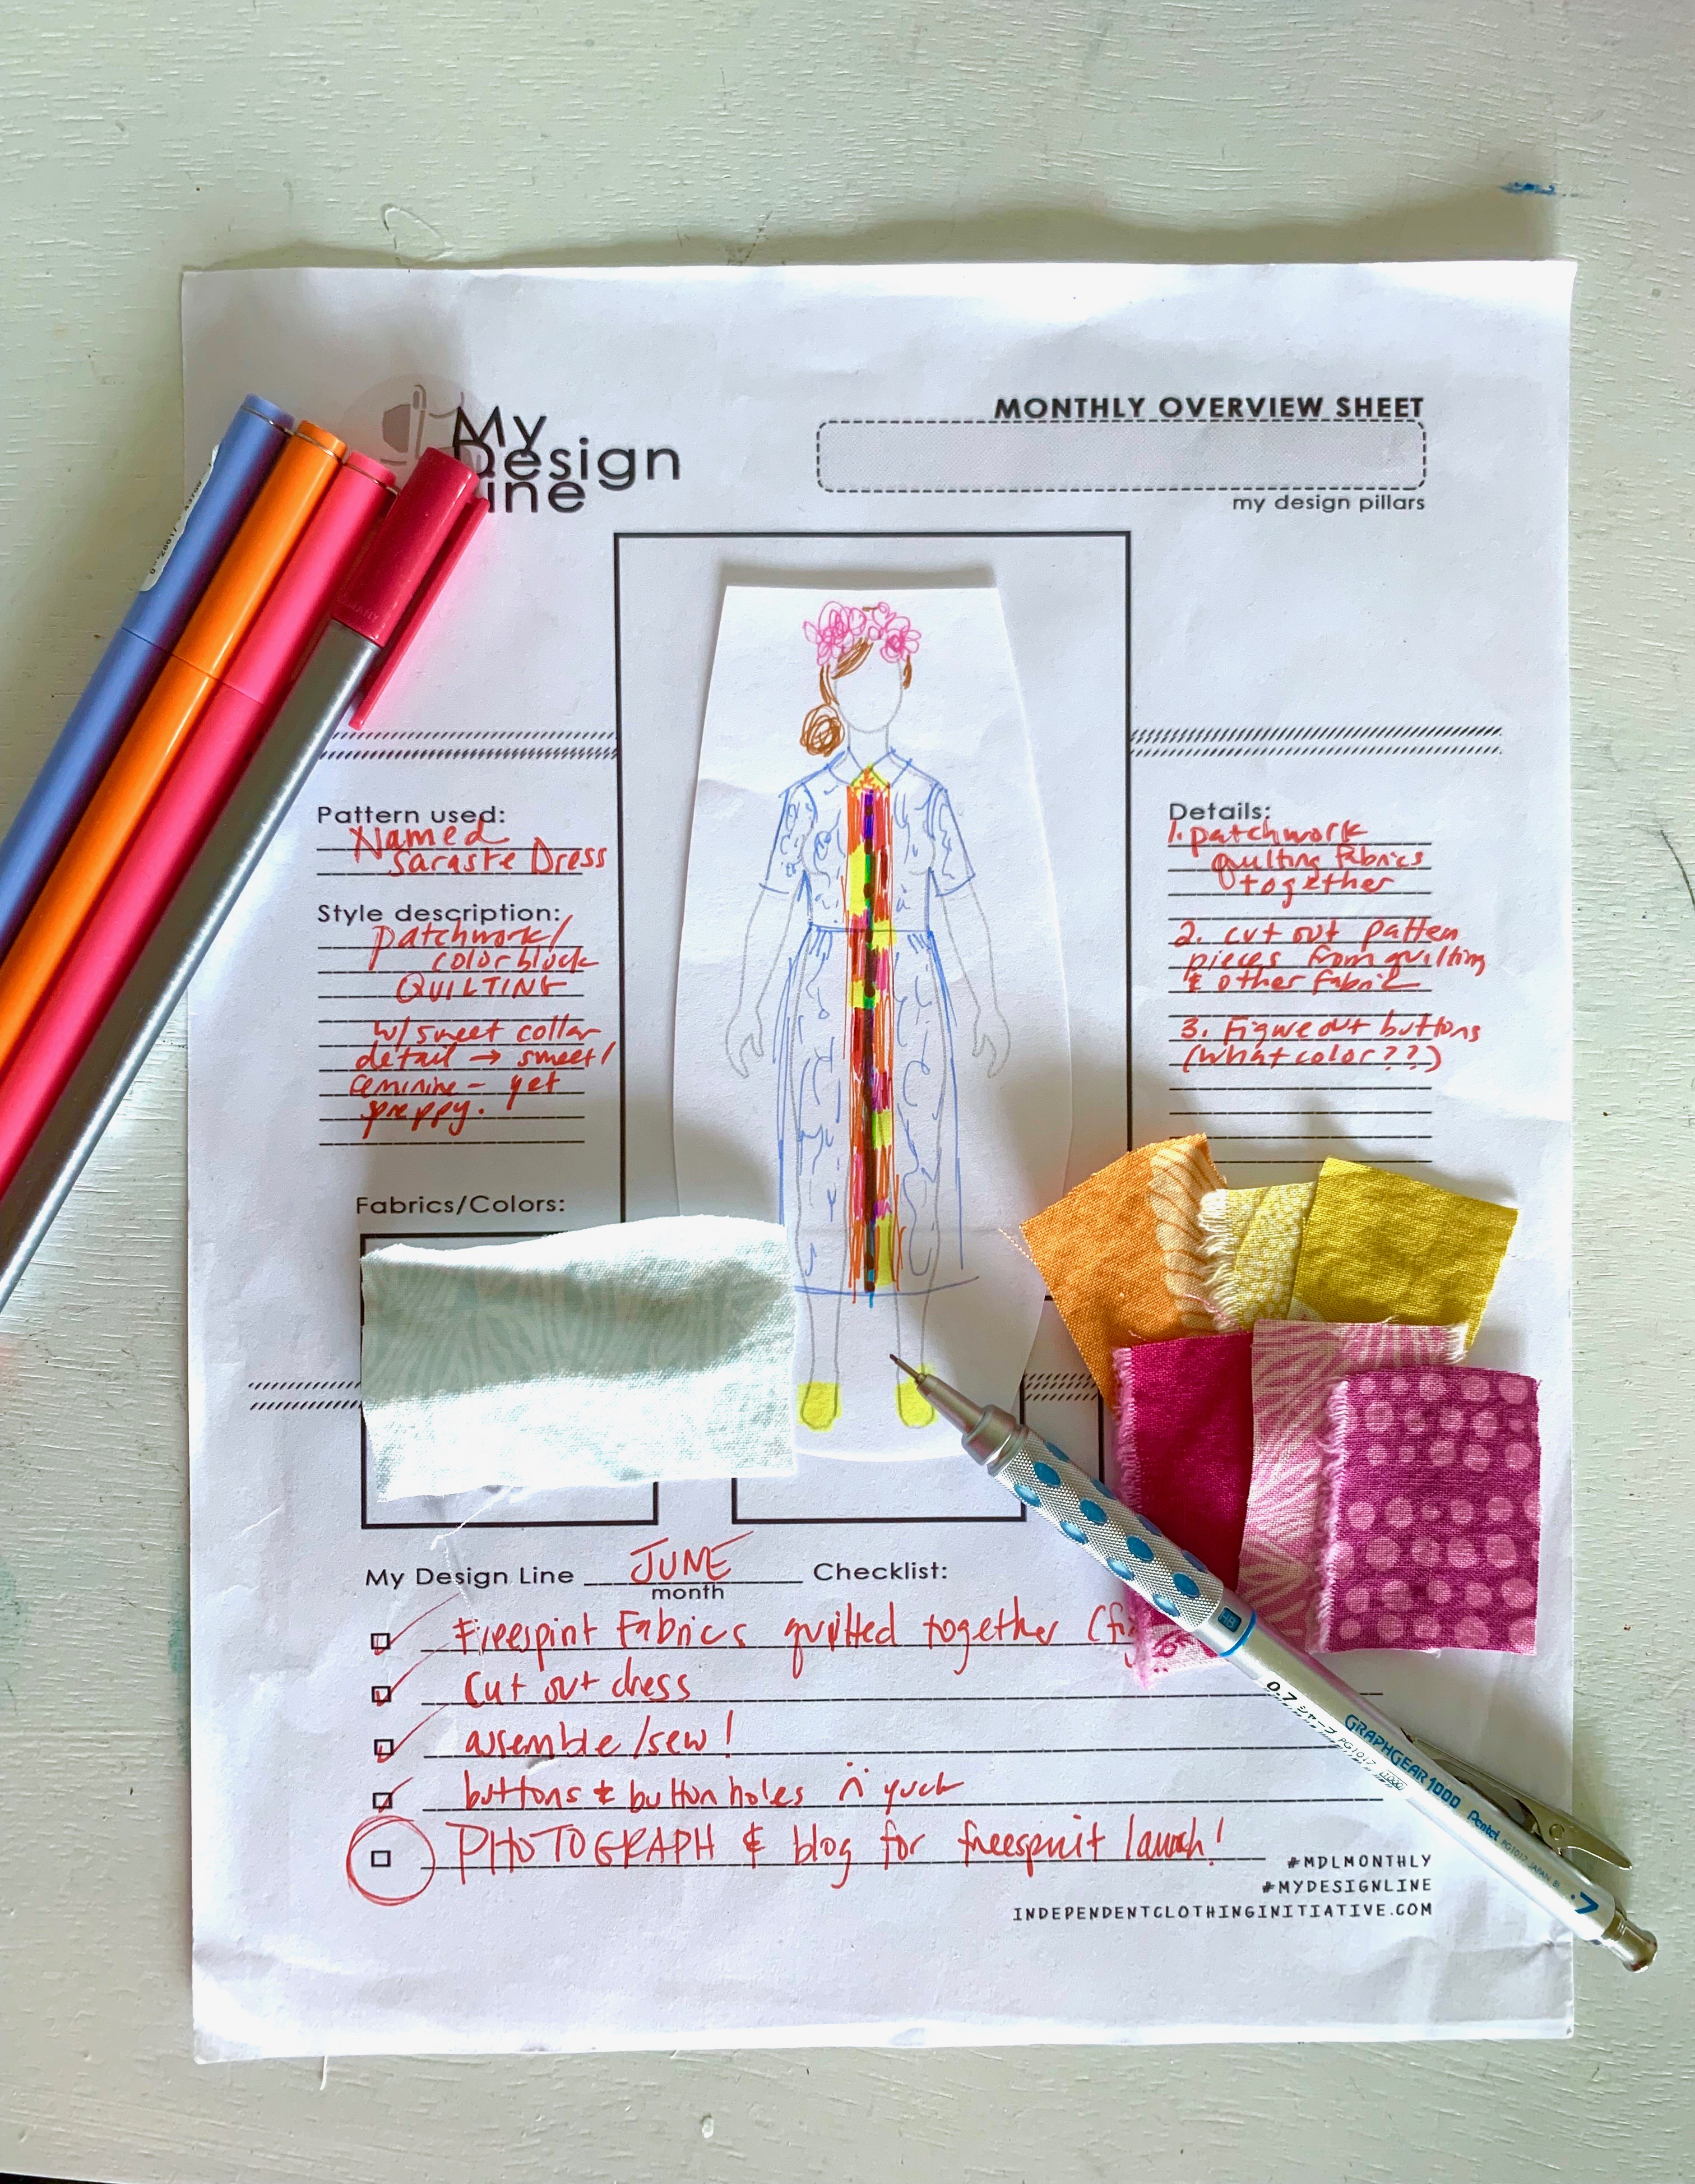 My
Design
Line
MONTHLY OVERVIEW SHEET
my design pillars
Pattern used:
Named
Saraste Dress
Style description:
patchwork/
color block
QUILTING
w/sweet collar
detail → sweet/
feminine - yet
preppy.
Fabrics/Colors:
Details:
1. patchwork
quilting fabrics
together
2. cut out pattern
pieces from quilting
& other fabric
3. Figure out buttons
(what color??)
My Design Line JUNE Checklist:
month
Freespirit Fabrics quilted together
cut out dress
assemble/sew!
buttons & button holes yuck
PHOTOGRAPH & blog for freespirit launch!
#MDLMONTHLY
#MYDESIGNLINE
INDEPENDENTCLOTHINGINITIATIVE.COM
HB
0.7 シャープ PG1017
GRAPHGEAR 1000 Pentel PG1017 JAPAN